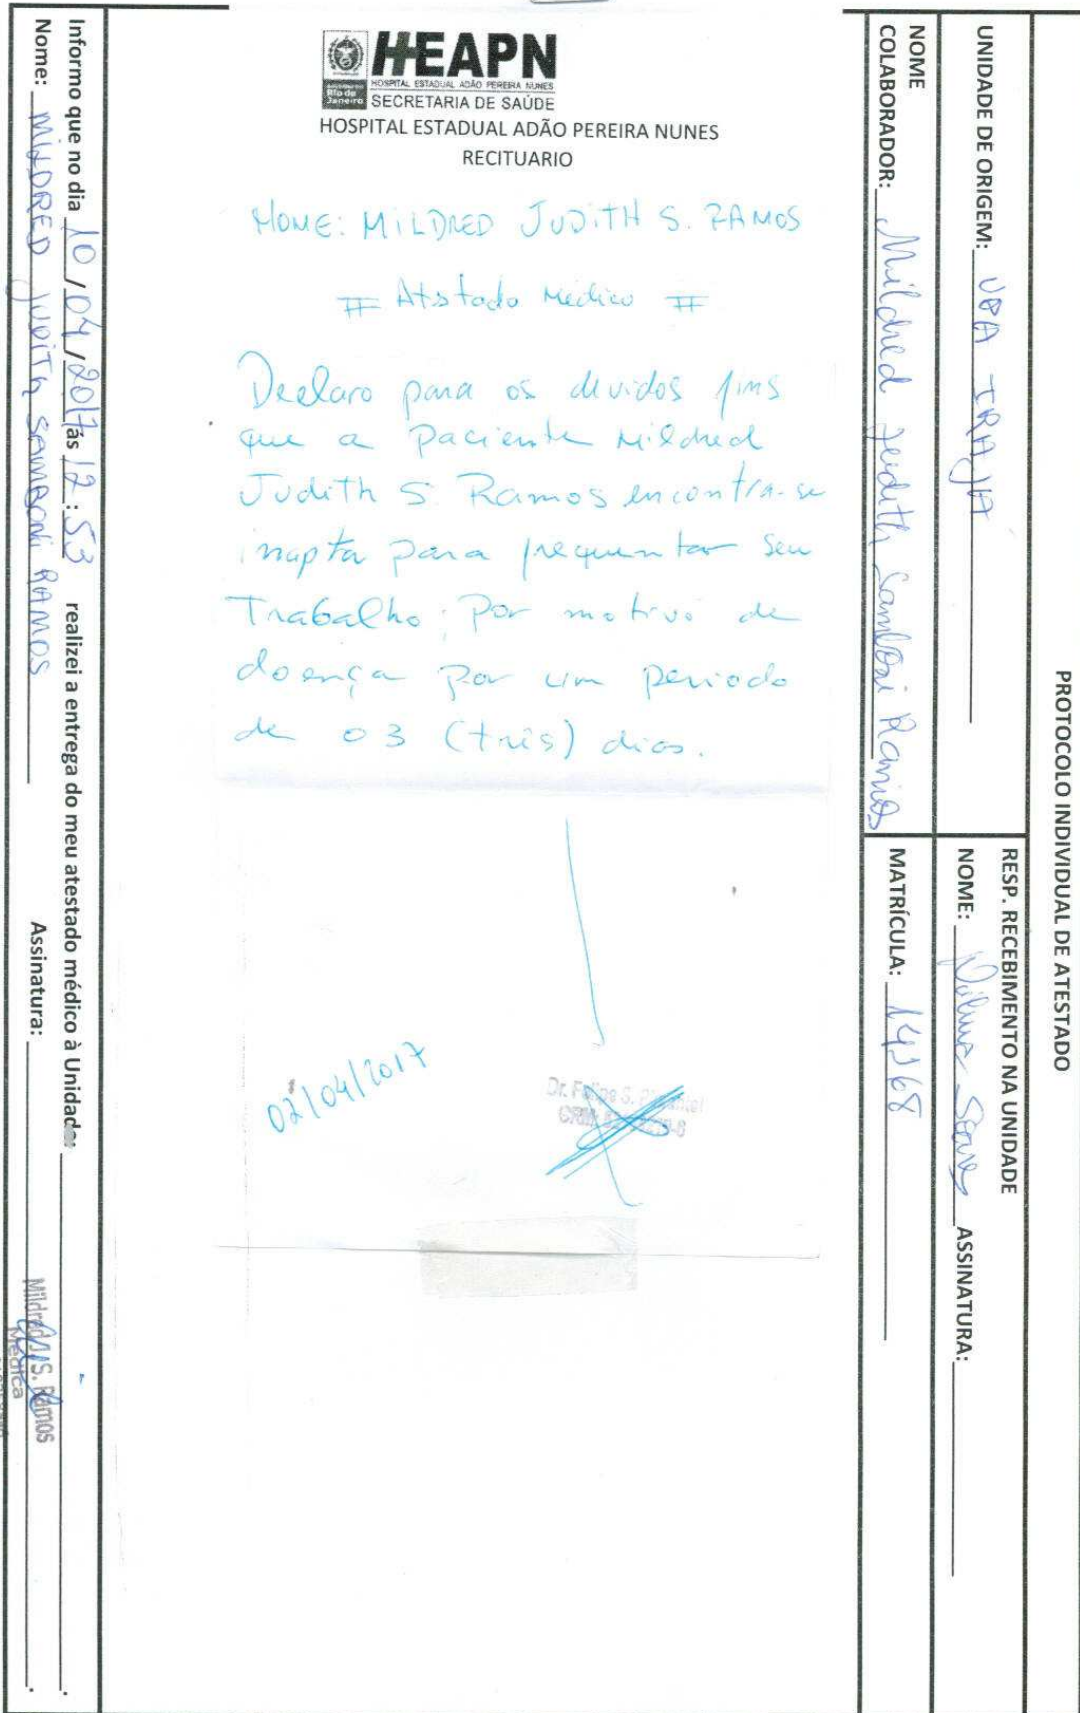 PROTOCOLO INDIVIDUAL DE ATESTADO
UNIDADE DE ORIGEM: UPA IRAJA
RESP. RECEBIMENTO NA UNIDADE
NOME: Soares ASSINATURA:
NOME
COLABORADOR: Mildred Judith Ramos
MATRÍCULA: 14968
HEAPN
HOSPITAL ESTADUAL ADÃO PEREIRA NUNES
Rio de
Janeiro
SECRETARIA DE SAÚDE
HOSPITAL ESTADUAL ADÃO PEREIRA NUNES
RECITUARIO
NOME: MILDRED JUDITH S. RAMOS
# Atstado Médico #
Declaro para os devidos fins
que a paciente Mildred
Judith S. Ramos encontra-se
inapta para frequentar seu
Trabalho; Por motivo de
doença por um periodo
de 03 (três) dias.
02/04/2017
Dr. Felipe S.
CRM
Informo que no dia 10/04/2017 ás 12:53 realizei a entrega do meu atestado médico à Unidade: .
Nome: MILDRED JUDITH SAMBONI RAMOS Assinatura: .
Mildred J. S. Ramos
Médica